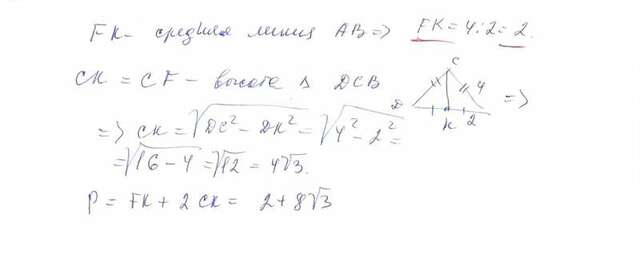 FK - средняя линия AB => FK = 4:2 = 2.
CK = CF - высота △ DCB
=> CK = √(DC² - DK²) = √(4² - 2²) = =>
= √(16 - 4) = √12 = 4√3.
P = FK + 2 CK = 2 + 8√3
C
4
D
K
2